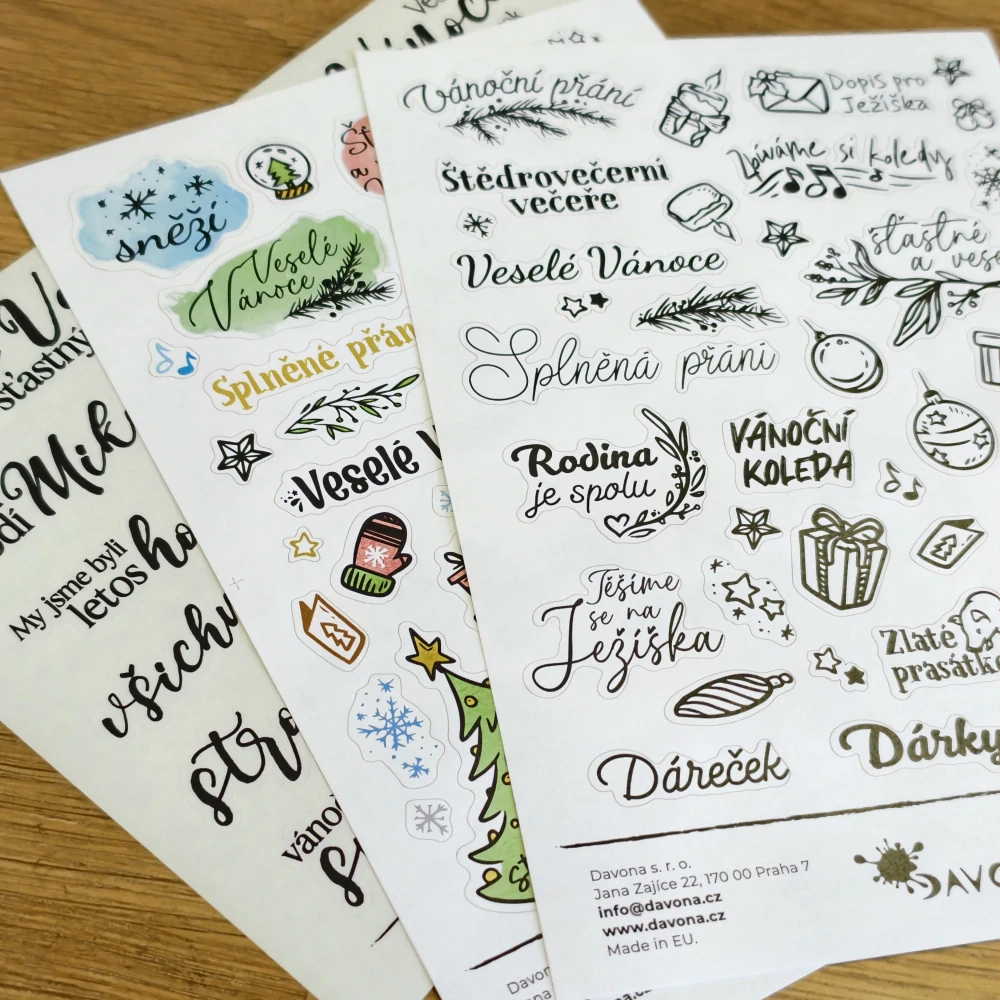 Vánoční přání
Dopis pro
Ježíška
Štědrovečerní
večeře
Zpíváme si koledy
Veselé Vánoce
šťastné
a vese
Splněná přání
Rodina
je spolu
VÁNOČNÍ
KOLEDA
Těšíme
se na
Ježíška
Zlaté
prasátko
Dáreček
Dárky
Davona s. r. o.
Jana Zajíce 22, 170 00 Praha 7
info@davona.cz
www.davona.cz
Made in EU.
DAVO
sněží
Veselé
Vánoce
Splněné přán
Veselé V
Davon
šťastný
Mik
My jsme byli
letos ho
všichn
stro
váno